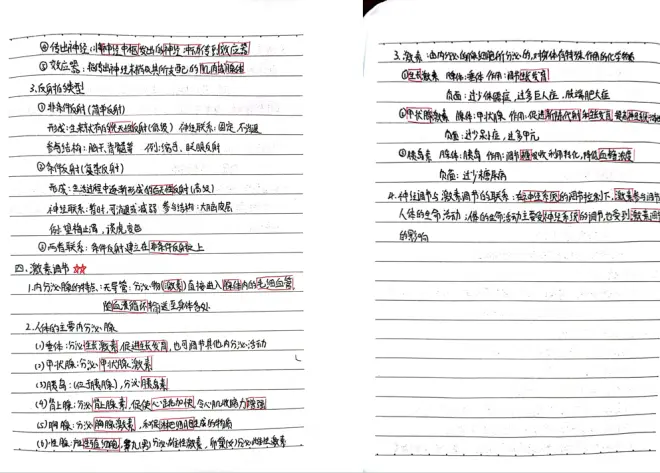 ④传出神经:将神经中枢发出的神经冲动传到效应器
⑤效应器:
3.反射的类型
①非条件反射(简单反射)
形成:生来就有的先天性反射(低级) 神经联系:固定,不消退
参与结构:脑干、脊髓等 例:缩手、眨眼反射
②条件反射(复杂反射)
形成:生活过程中逐渐形成的后天性反射(高级)
神经联系:暂时,可消退或减弱 参与结构:大脑皮层
例:望梅止渴,谈虎色变
③两者联系:条件反射建立在非条件反射之上
四.激素调节 ☆☆
1.内分泌腺的特点:无导管;分泌物(激素)直接进入腺体内的毛细血管,
随血液循环输送至身体各处
2.人体的主要内分泌腺
(1)垂体:分泌生长激素,促进生长发育,也可调节其他内分泌活动
(2)甲状腺:分泌甲状腺激素
(3)胰岛:(位于胰腺),分泌胰岛素
(4)肾上腺:分泌肾上腺素,促使心跳加快,令心肌收缩力增强
(5)胸腺:分泌胸腺激素,
(6)性腺:
3.激素:由内分泌腺的腺细胞所分泌的,对身体有特殊作用的化学物质
①生长激素 腺体:垂体 作用:调节生长发育
负面:过少侏儒症,过多巨人症,肢端肥大症
②甲状腺激素 腺体:甲状腺 作用:促进新陈代谢和生长发育
负面:过少呆小症,过多甲亢
③胰岛素 腺体:胰岛 作用:调节糖吸收
负面:过少糖尿病
4.神经调节与激素调节的联系:在神经系统的调节控制下,激素参与调节
人体的生命活动;人体的生命活动主要受神经系统的调节,也受到激素调节
的影响